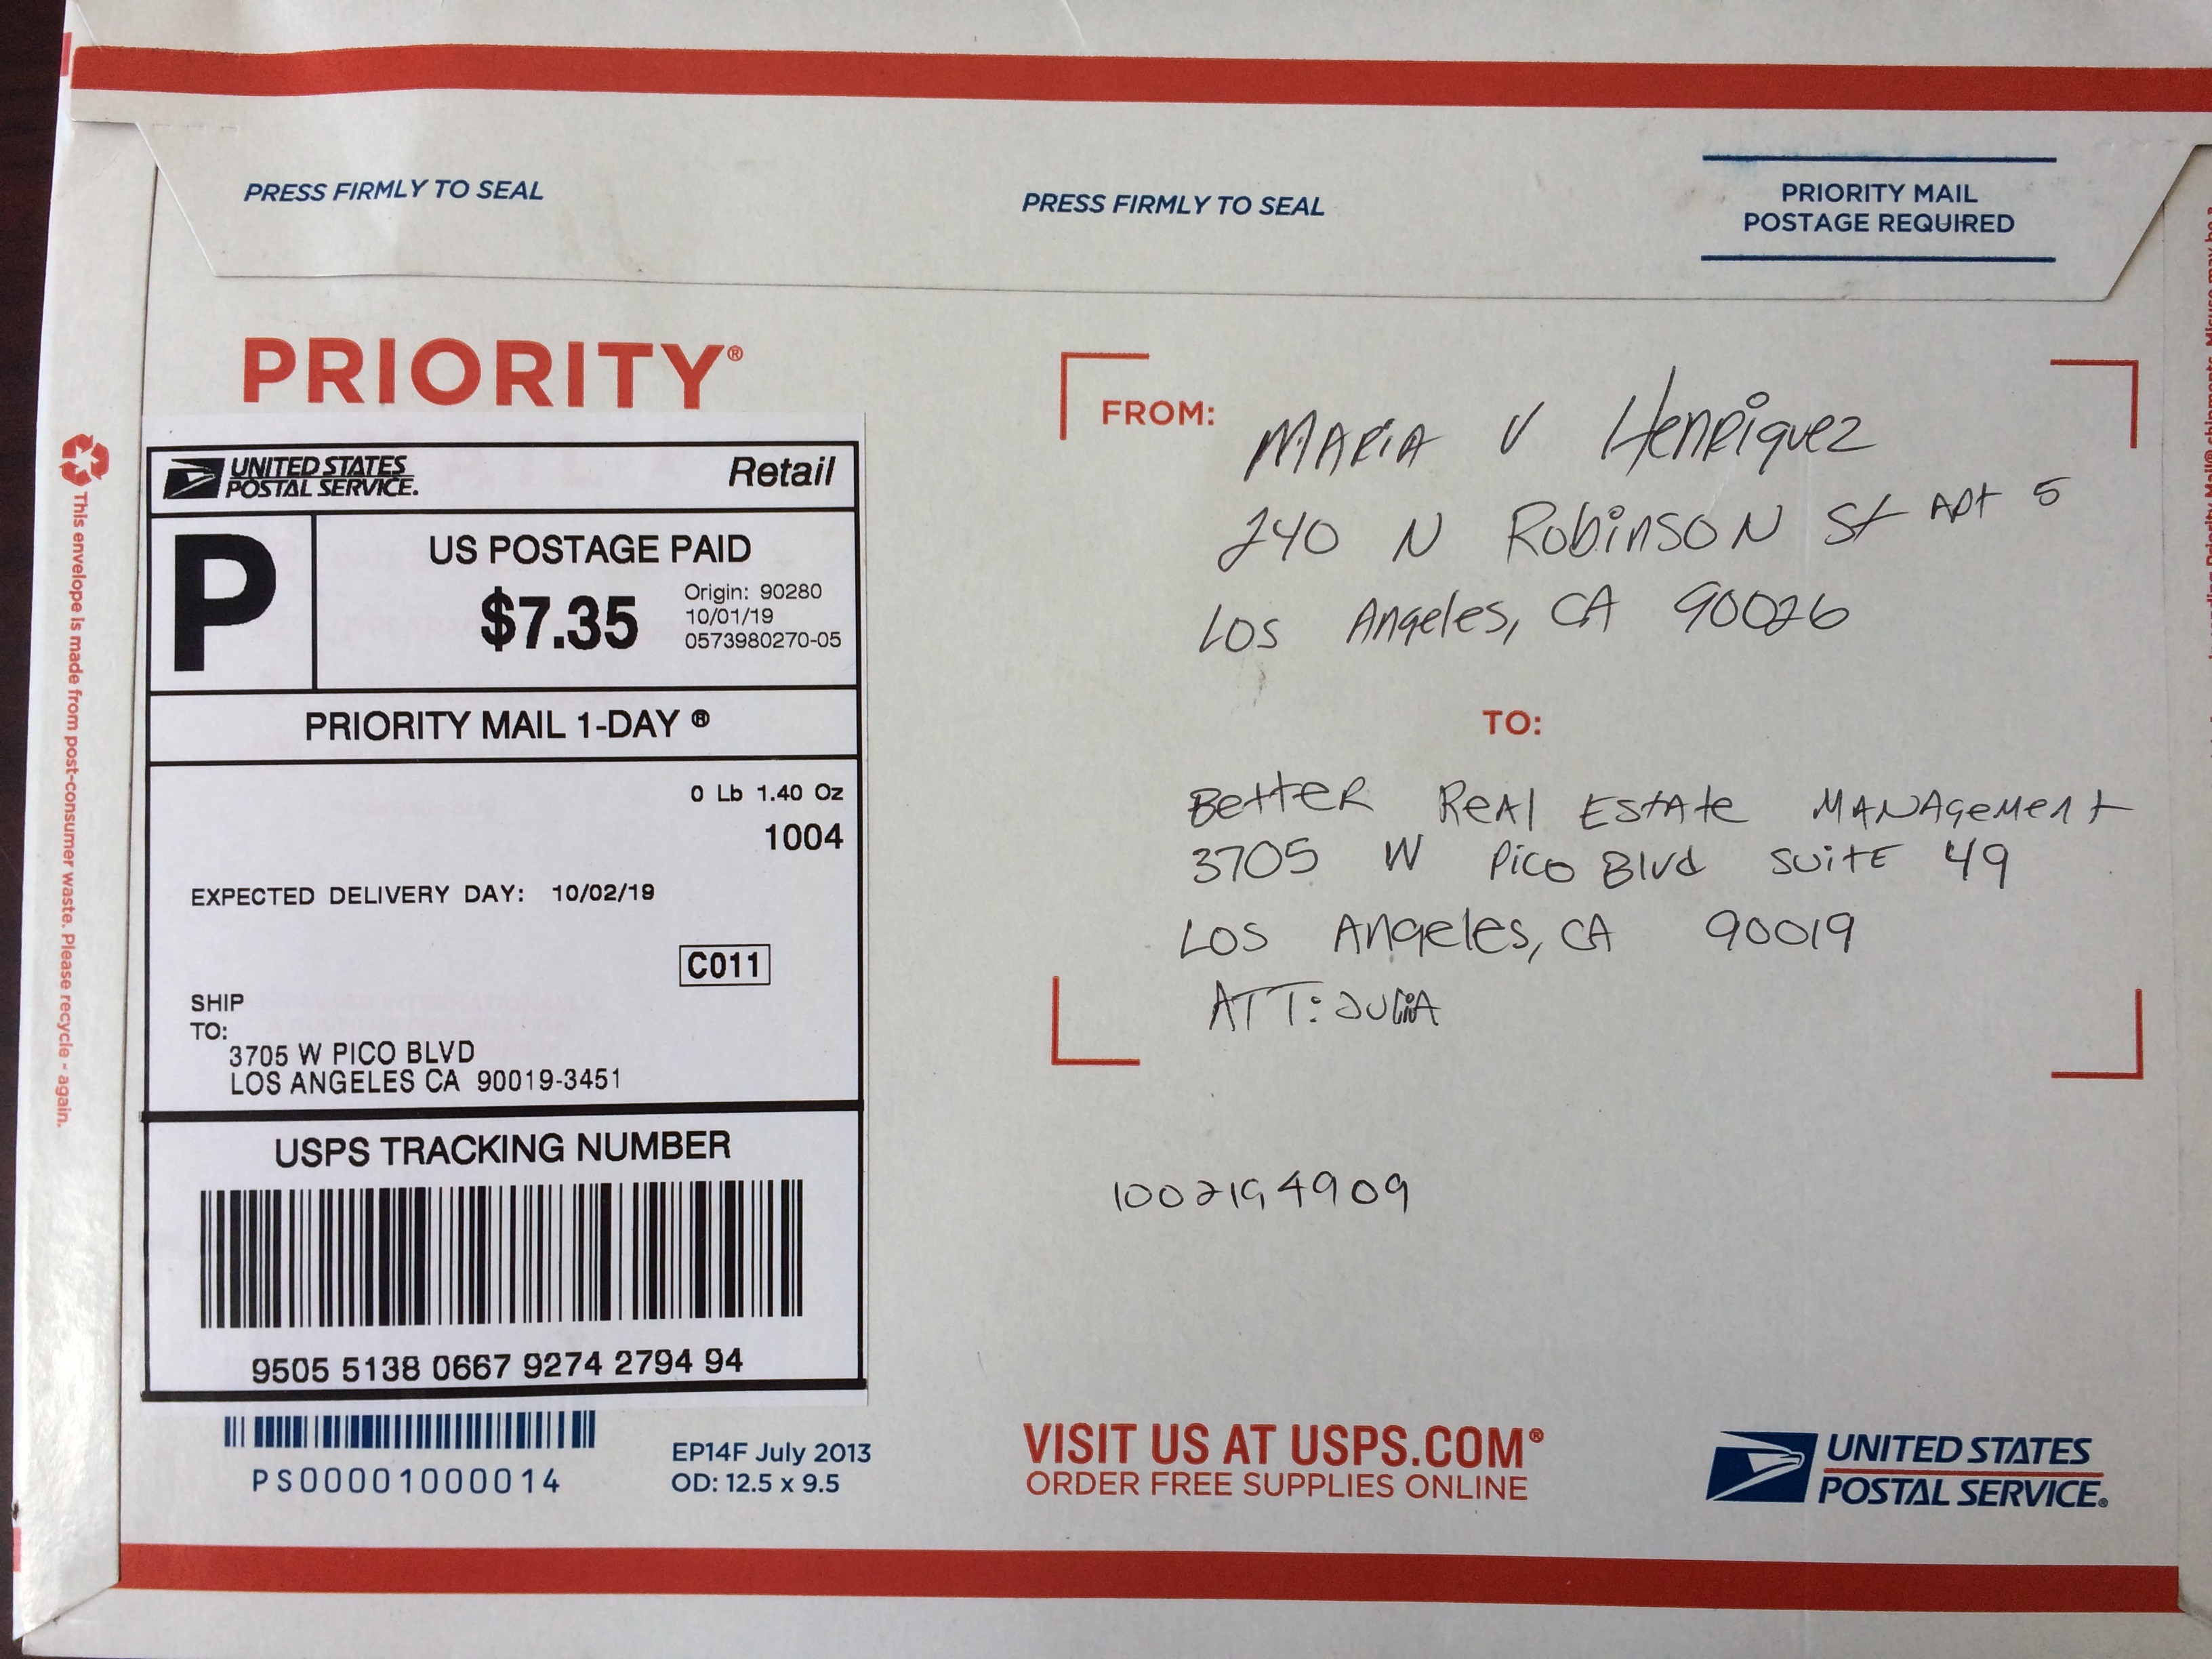 PRESS FIRMLY TO SEAL
PRESS FIRMLY TO SEAL
PRIORITY MAIL
POSTAGE REQUIRED
PRIORITY®
UNITED STATES
POSTAL SERVICE.
Retail
P
US POSTAGE PAID
$7.35
Origin: 90280
10/01/19
0573980270-05
PRIORITY MAIL 1-DAY ®
0 Lb 1.40 Oz
1004
EXPECTED DELIVERY DAY: 10/02/19
C011
SHIP
TO:
3705 W PICO BLVD
LOS ANGELES CA 90019-3451
USPS TRACKING NUMBER
9505 5138 0667 9274 2794 94
PS00001000014
EP14F July 2013
OD: 12.5 x 9.5
This envelope is made from post-consumer waste. Please recycle - again.
FROM:
MARIA V Henriquez
240 N Robinson St Apt 5
Los Angeles, CA 90026
TO:
Better Real Estate Management
3705 W Pico Blvd Suite 49
Los Angeles, CA 90019
ATT: Julia
1002194909
VISIT US AT USPS.COM®
ORDER FREE SUPPLIES ONLINE
UNITED STATES
POSTAL SERVICE®